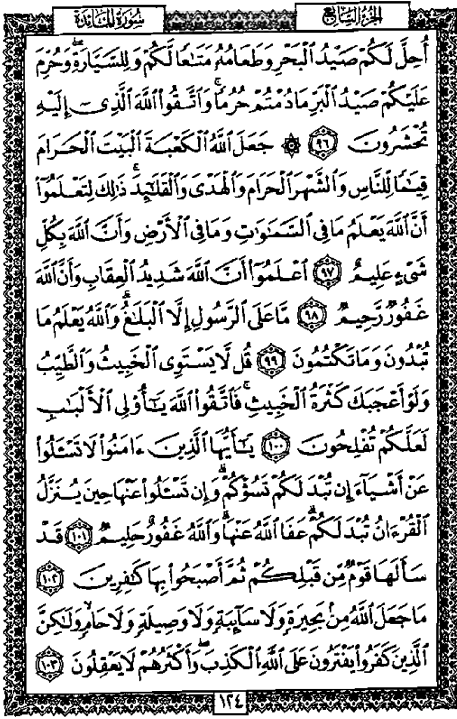 الجزء السابع
سورة المائدة
أُحِلَّ لَكُمْ صَيْدُ الْبَحْرِ وَطَعَامُهُ مَتَاعًا لَّكُمْ وَلِلسَّيَّارَةِ ۖ وَحُرِّمَ
عَلَيْكُمْ صَيْدُ الْبَرِّ مَا دُمْتُمْ حُرُمًا ۗ وَاتَّقُوا اللَّهَ الَّذِي إِلَيْهِ
تُحْشَرُونَ ﴿٩٦﴾ ۞ جَعَلَ اللَّهُ الْكَعْبَةَ الْبَيْتَ الْحَرَامَ
قِيَامًا لِّلنَّاسِ وَالشَّهْرَ الْحَرَامَ وَالْهَدْيَ وَالْقَلَائِدَ ۚ ذَٰلِكَ لِتَعْلَمُوا
أَنَّ اللَّهَ يَعْلَمُ مَا فِي السَّمَاوَاتِ وَمَا فِي الْأَرْضِ وَأَنَّ اللَّهَ بِكُلِّ
شَيْءٍ عَلِيمٌ ﴿٩٧﴾ اعْلَمُوا أَنَّ اللَّهَ شَدِيدُ الْعِقَابِ وَأَنَّ اللَّهَ
غَفُورٌ رَّحِيمٌ ﴿٩٨﴾ مَّا عَلَى الرَّسُولِ إِلَّا الْبَلَاغُ ۗ وَاللَّهُ يَعْلَمُ مَا
تُبْدُونَ وَمَا تَكْتُمُونَ ﴿٩٩﴾ قُل لَّا يَسْتَوِي الْخَبِيثُ وَالطَّيِّبُ
وَلَوْ أَعْجَبَكَ كَثْرَةُ الْخَبِيثِ ۚ فَاتَّقُوا اللَّهَ يَا أُولِي الْأَلْبَابِ
لَعَلَّكُمْ تُفْلِحُونَ ﴿١٠٠﴾ يَا أَيُّهَا الَّذِينَ آمَنُوا لَا تَسْأَلُوا
عَنْ أَشْيَاءَ إِن تُبْدَ لَكُمْ تَسُؤْكُمْ وَإِن تَسْأَلُوا عَنْهَا حِينَ يُنَزَّلُ
الْقُرْآنُ تُبْدَ لَكُمْ عَفَا اللَّهُ عَنْهَا ۗ وَاللَّهُ غَفُورٌ حَلِيمٌ ﴿١٠١﴾ قَدْ
سَأَلَهَا قَوْمٌ مِّن قَبْلِكُمْ ثُمَّ أَصْبَحُوا بِهَا كَافِرِينَ ﴿١٠٢﴾
مَا جَعَلَ اللَّهُ مِن بَحِيرَةٍ وَلَا سَائِبَةٍ وَلَا وَصِيلَةٍ وَلَا حَامٍ ۙ وَلَٰكِنَّ
الَّذِينَ كَفَرُوا يَفْتَرُونَ عَلَى اللَّهِ الْكَذِبَ ۖ وَأَكْثَرُهُمْ لَا يَعْقِلُونَ ﴿١٠٣﴾
١٢٤